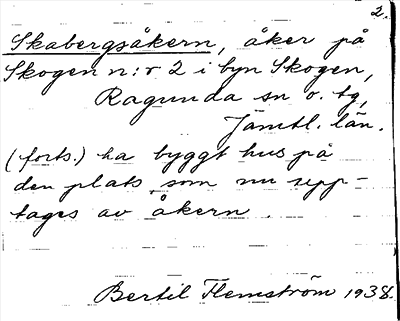 2.
Skabergsåkern, åker på
Skogen n:r 2 i byn Skogen,
Ragunda sn o. tg,
Jämtl. län.
(forts.) ha byggt hus på
den plats som nu upp-
tages av åkern.
Bertil Flemström 1938.